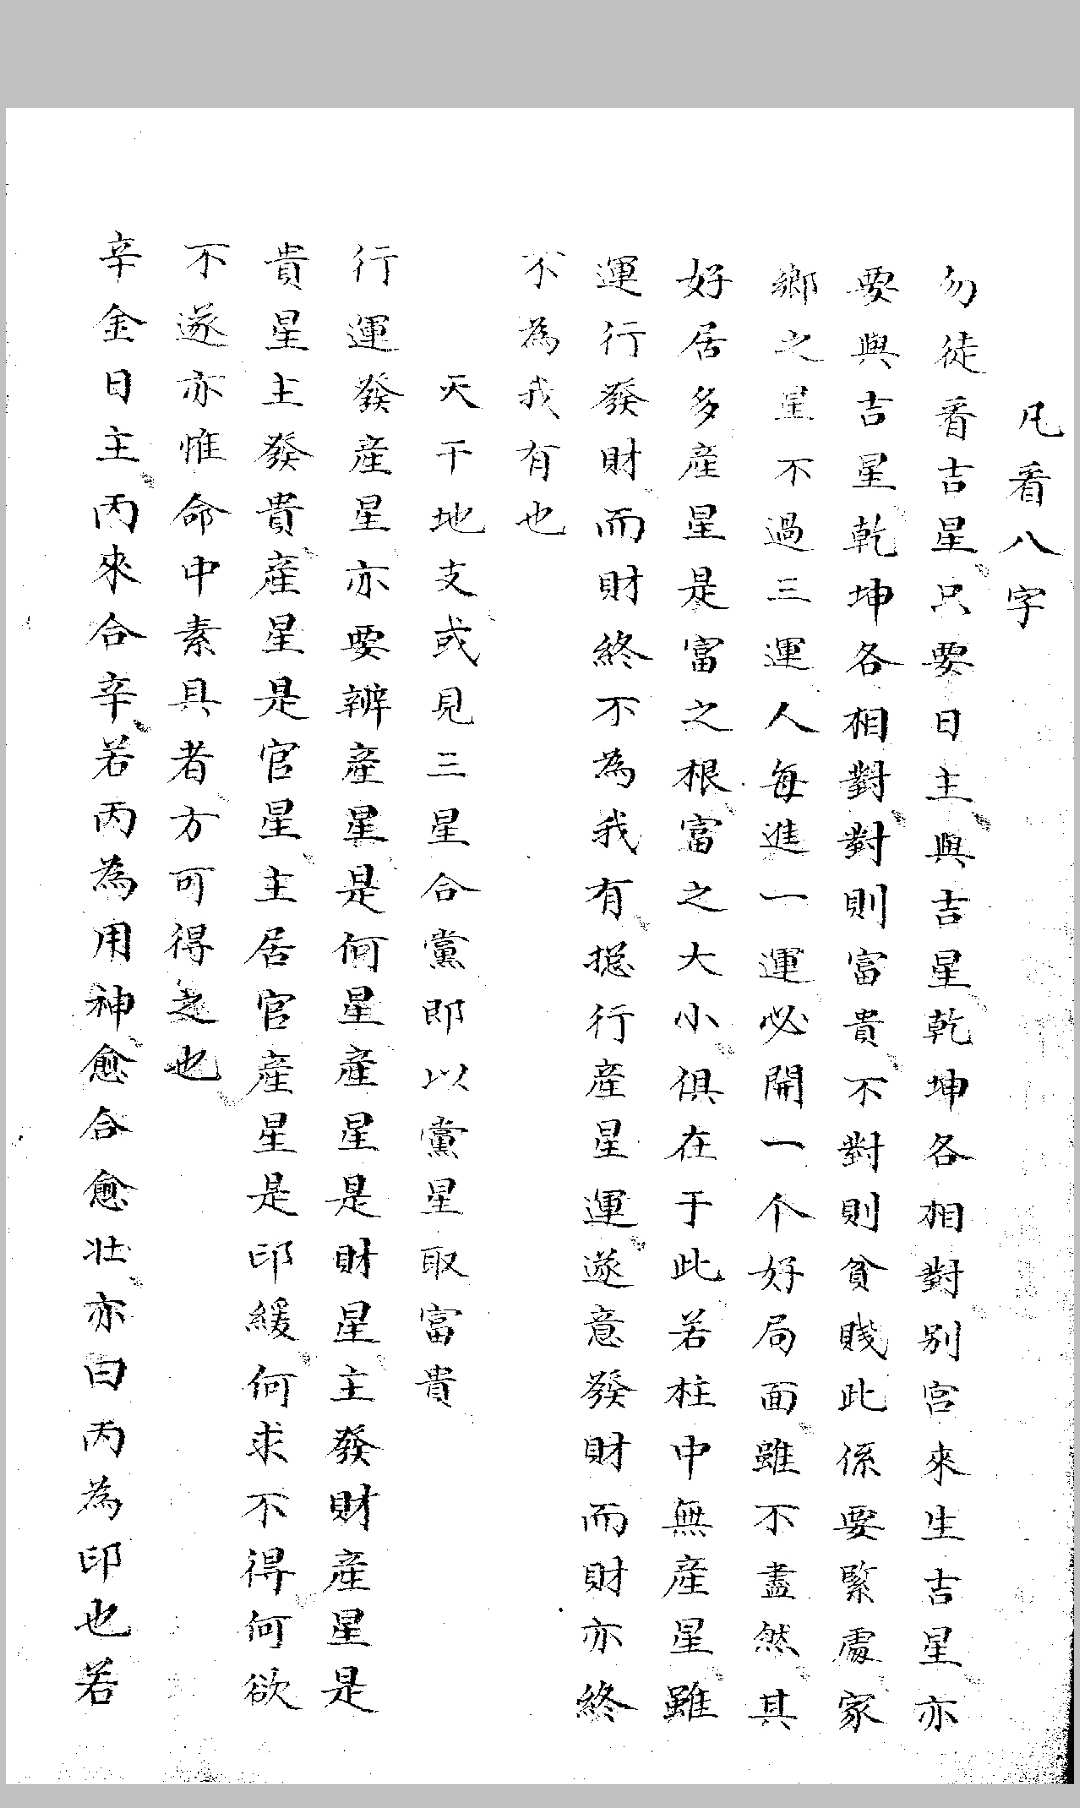 凡看八字
勿徒看吉星只要日主與吉星乾坤各相對别宫來生吉星亦
要與吉星乾坤各相對對則富貴不對則貧賤此係要緊處家
鄉之星不過三運人每進一運必開一个好局面雖不盡然其
好居多產星是富之根富之大小俱在于此若柱中無產星雖
運行發財而財終不為我有總行產星運遂意發財而財亦終
不為我有也
天干地支或見三星合黨即以黨星取富貴
行運發產星亦要辨產星是何星產星是財星主發財產星是
貴星主發貴產星是官星主居官產星是印緩何求不得何欲
不遂亦惟命中素具者方可得之也
辛金日主丙來合辛若丙為用神愈合愈壯亦曰丙為印也若